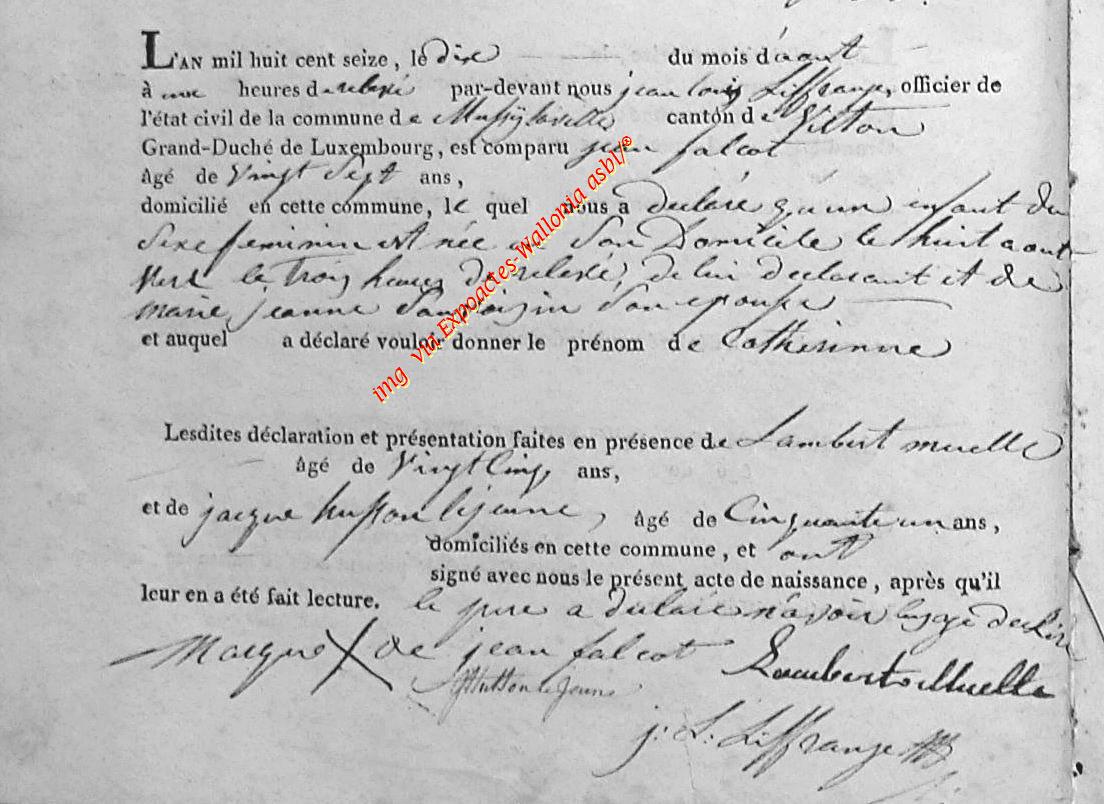 L'AN mil huit cent seize, le dix du mois d'aout
à une heures de relevé par-devant nous jean louis Liffrange, officier de
l'état civil de la commune de Mussylaville canton de Virton
Grand-Duché de Luxembourg, est comparu jean falcot
âgé de Vingt Sept ans,
domicilié en cette commune, le quel nous a declaré qu'un enfant du
Sexe feminin est née en Son Domicile le huit aout
vers le trois heures de relevé, de lui declarant et de
marie jeanne son epouse
et auquel a déclaré vouloir donner le prénom de Catherinne
Lesdites déclaration et présentation faites en présence de Lambert muelle
âgé de Vingt Cinq ans,
et de jacque husson lejeune, âgé de Cinquante un ans,
domiciliés en cette commune, et ont
signé avec nous le présent acte de naissance, après qu'il
leur en a été fait lecture. le pere a declaré n'avoir
Marque X de jean falcot Lambert Muelle
Husson le Jeune
j. L. Liffrange
img via Expoactes-Wallonia asbl/®